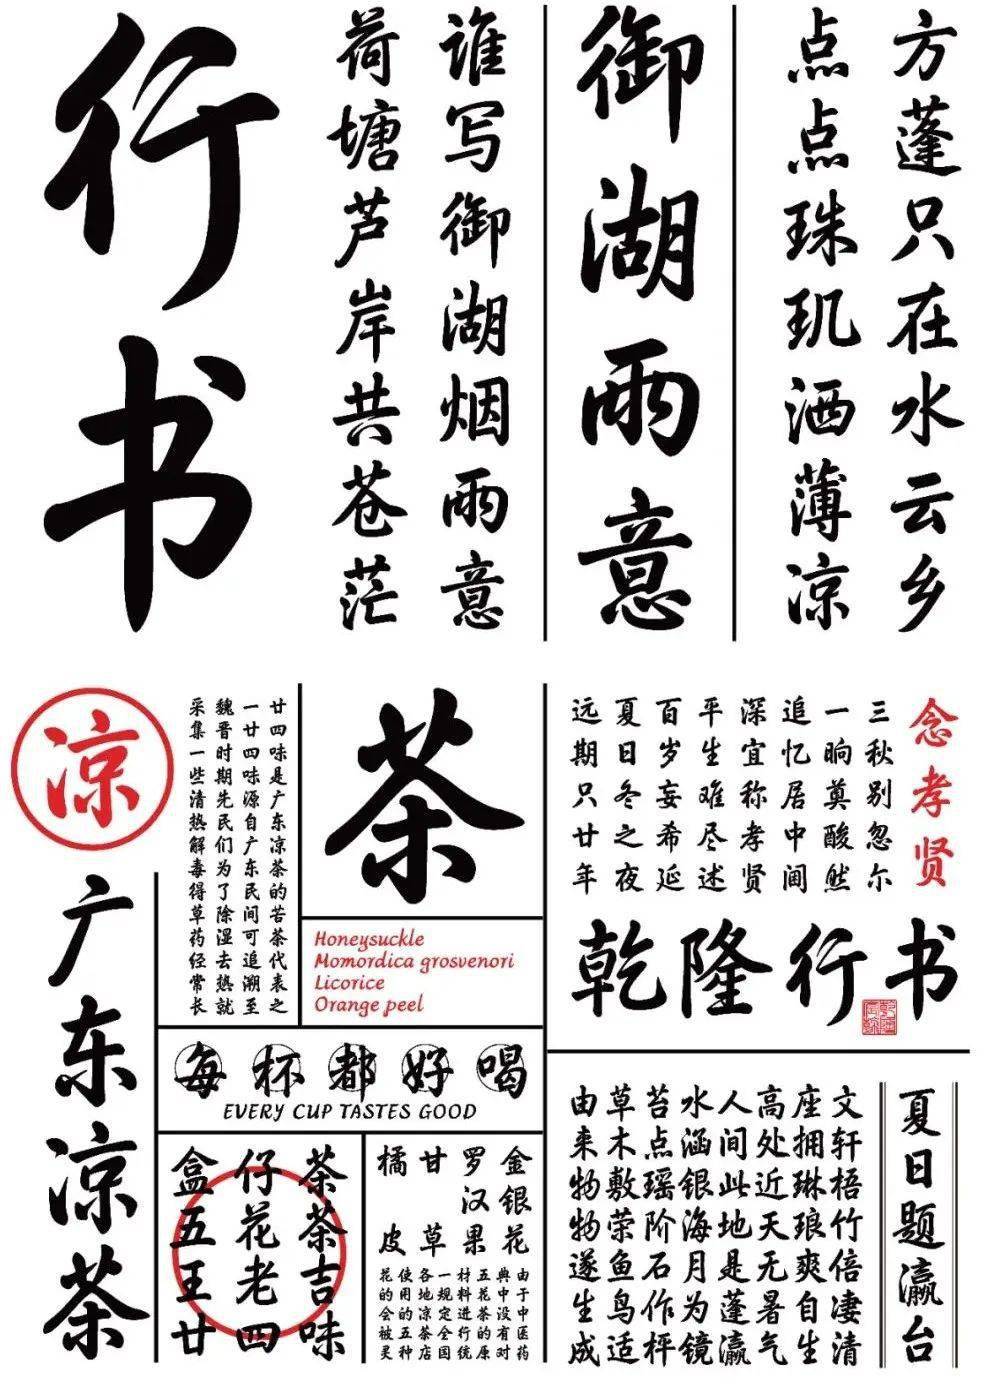 方蓬只在水云乡
点点珠玑洒薄凉
御湖雨意
谁写御湖烟雨意
荷塘芦岸共苍茫
行书
念孝贤
三秋别忽尔
一晌奠酸然
追忆居中间
深宜称孝贤
平生难尽述
百岁妄希延
夏日冬之夜
远期只廿年
乾隆行书
夏日题瀛台
文轩梧竹倍凄清
座拥琳琅爽自生
高处近天无暑气
人间此地是蓬瀛
水涵银海月为镜
苔点瑶阶石作枰
草木敷荣鱼鸟适
由来物物遂生成
凉
茶
广东凉茶
廿四味是广东凉茶的苦茶代表之
一廿四味源自广东民间可追溯至
魏晋时期先民们为了除湿去热就
采集一些清热解毒得草药经常长
Honeysuckle
Momordica grosvenori
Licorice
Orange peel
每杯都好喝
EVERY CUP TASTES GOOD
盒仔茶
五花茶
王老吉
廿四味
金银花
罗汉果
甘草
橘皮
由于中医药
典中没有对
五花茶的原
材料进行统
一规定全国
各地凉茶店
使用的五种
花的会被灵